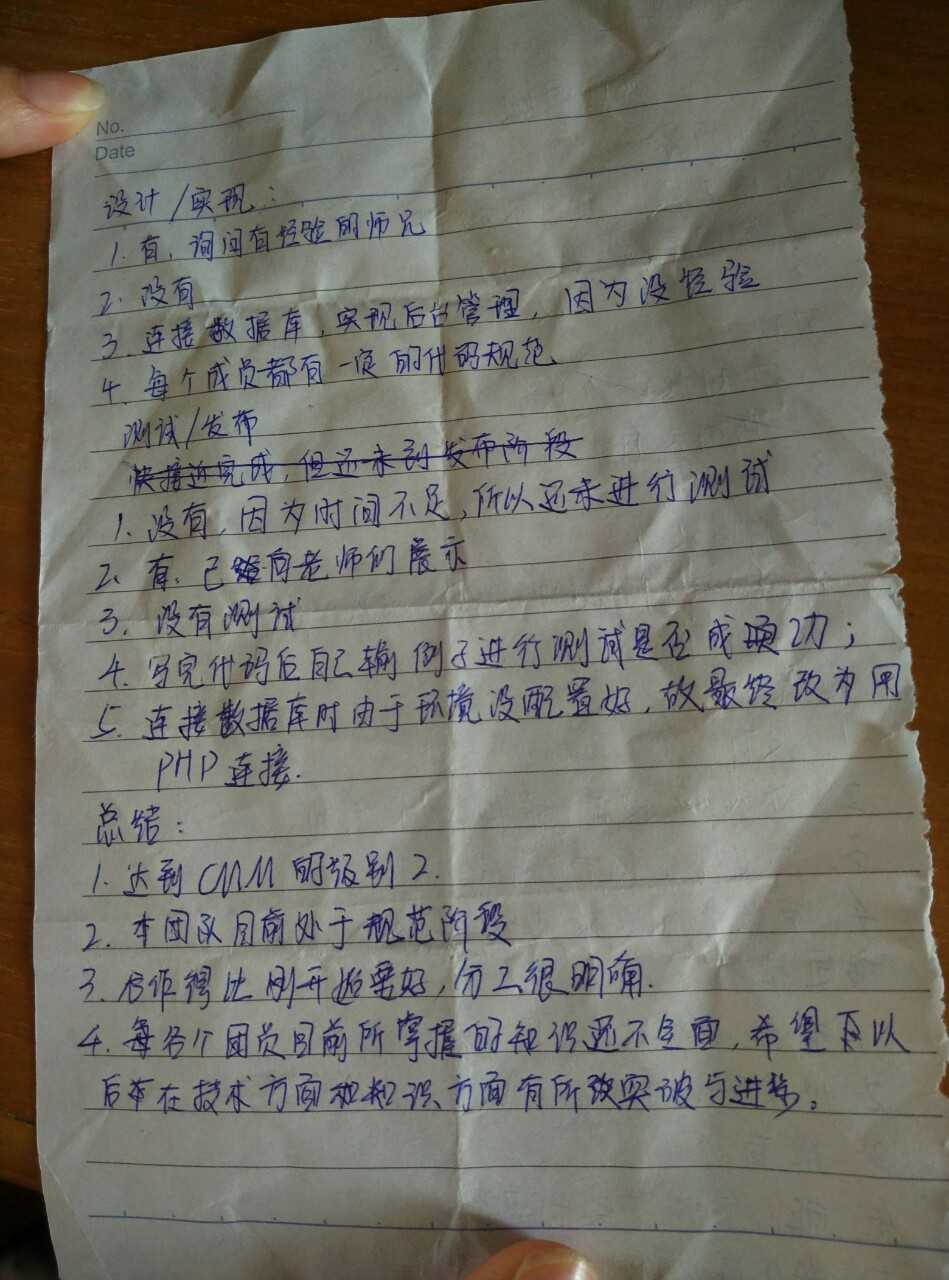 No.
Date
设计/实现:
1. 有，询问有经验的师兄
2. 没有
3. 连接数据库，实现后台管理，因为没经验
4. 每个成员都有一定的代码规范
测试/发布
快接近完成，但还未到发布阶段
1. 没有，因为时间不足，所以还未进行测试
2. 有，已经向老师们展示
3. 没有测试
4. 写完代码后自己输例子进行测试是否成功；
5. 连接数据库时由于环境没配置好，故最终改为用
PHP连接.
总结:
1. 达到CMM的级别2.
2. 本团队目前处于规范阶段
3. 合作得比刚开始要好，分工很明确.
4. 每个团员目前所掌握的知识还不全面，希望以
后在技术方面和知识方面有所突破与进步。